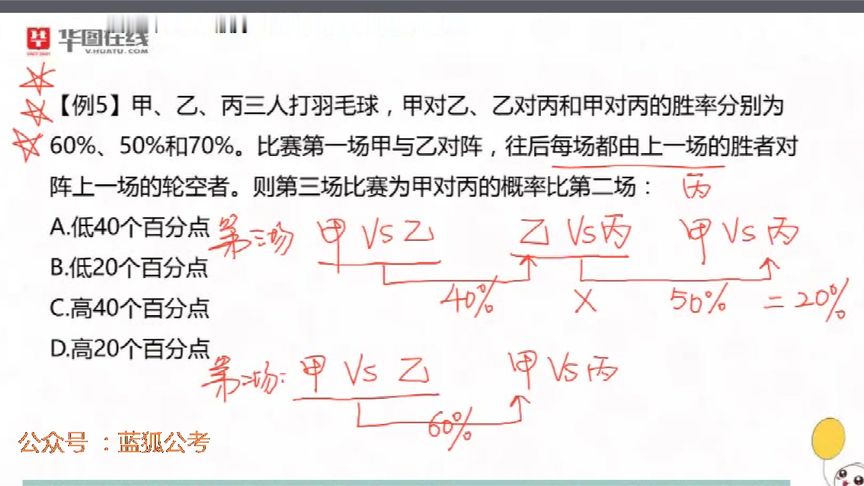 华图在线
V.HUATU.COM
【例5】甲、乙、丙三人打羽毛球，甲对乙、乙对丙和甲对丙的胜率分别为
60%、50%和70%。比赛第一场甲与乙对阵，往后每场都由上一场的胜者对
阵上一场的轮空者。则第三场比赛为甲对丙的概率比第二场： 丙
A.低40个百分点 第三场 甲 VS 乙 乙 VS 丙 甲 VS 丙
B.低20个百分点
40% × 50% =20%
C.高40个百分点
D.高20个百分点
第二场: 甲 VS 乙 甲 VS 丙
60%
公众号 ：蓝狐公考